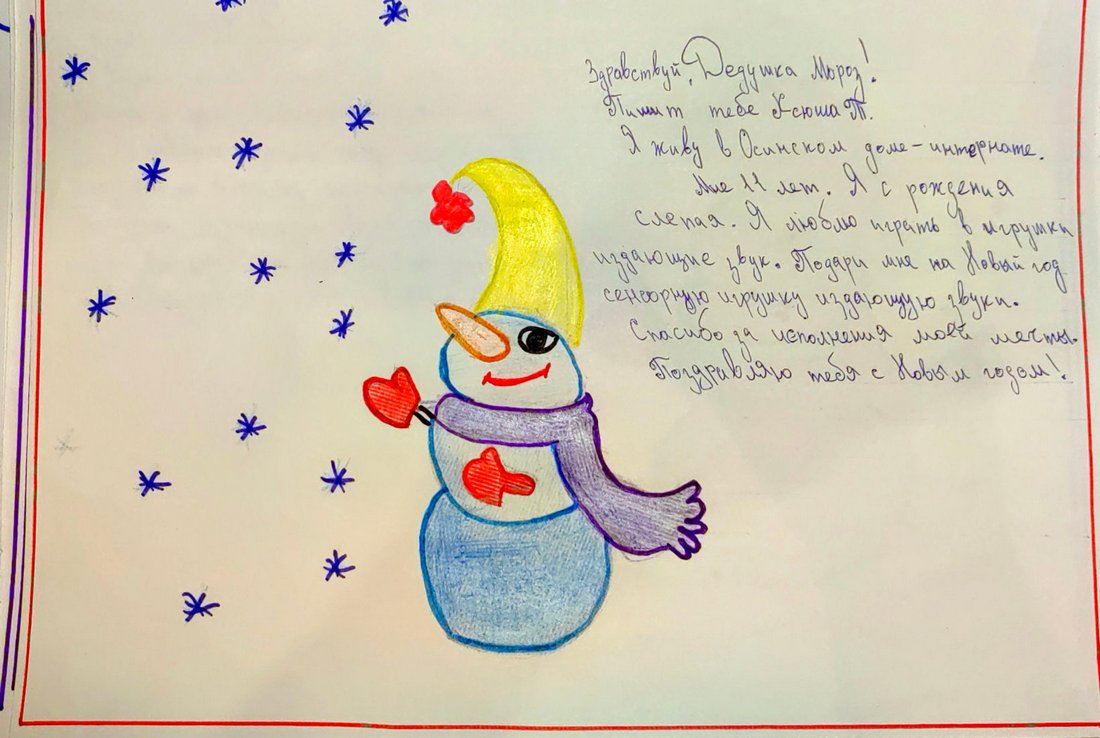 Здравствуй, Дедушка Мороз!
Пишит тебе Ксюша П.
Я живу в Осинском доме-интернате.
Мне 11 лет. Я с рождения
слепая. Я люблю играть в игрушки
издающие звук. Подари мне на Новый год
сенсорную игрушку издающую звуки.
Спасибо за исполнения моей мечты.
Поздравляю тебя с Новым годом!